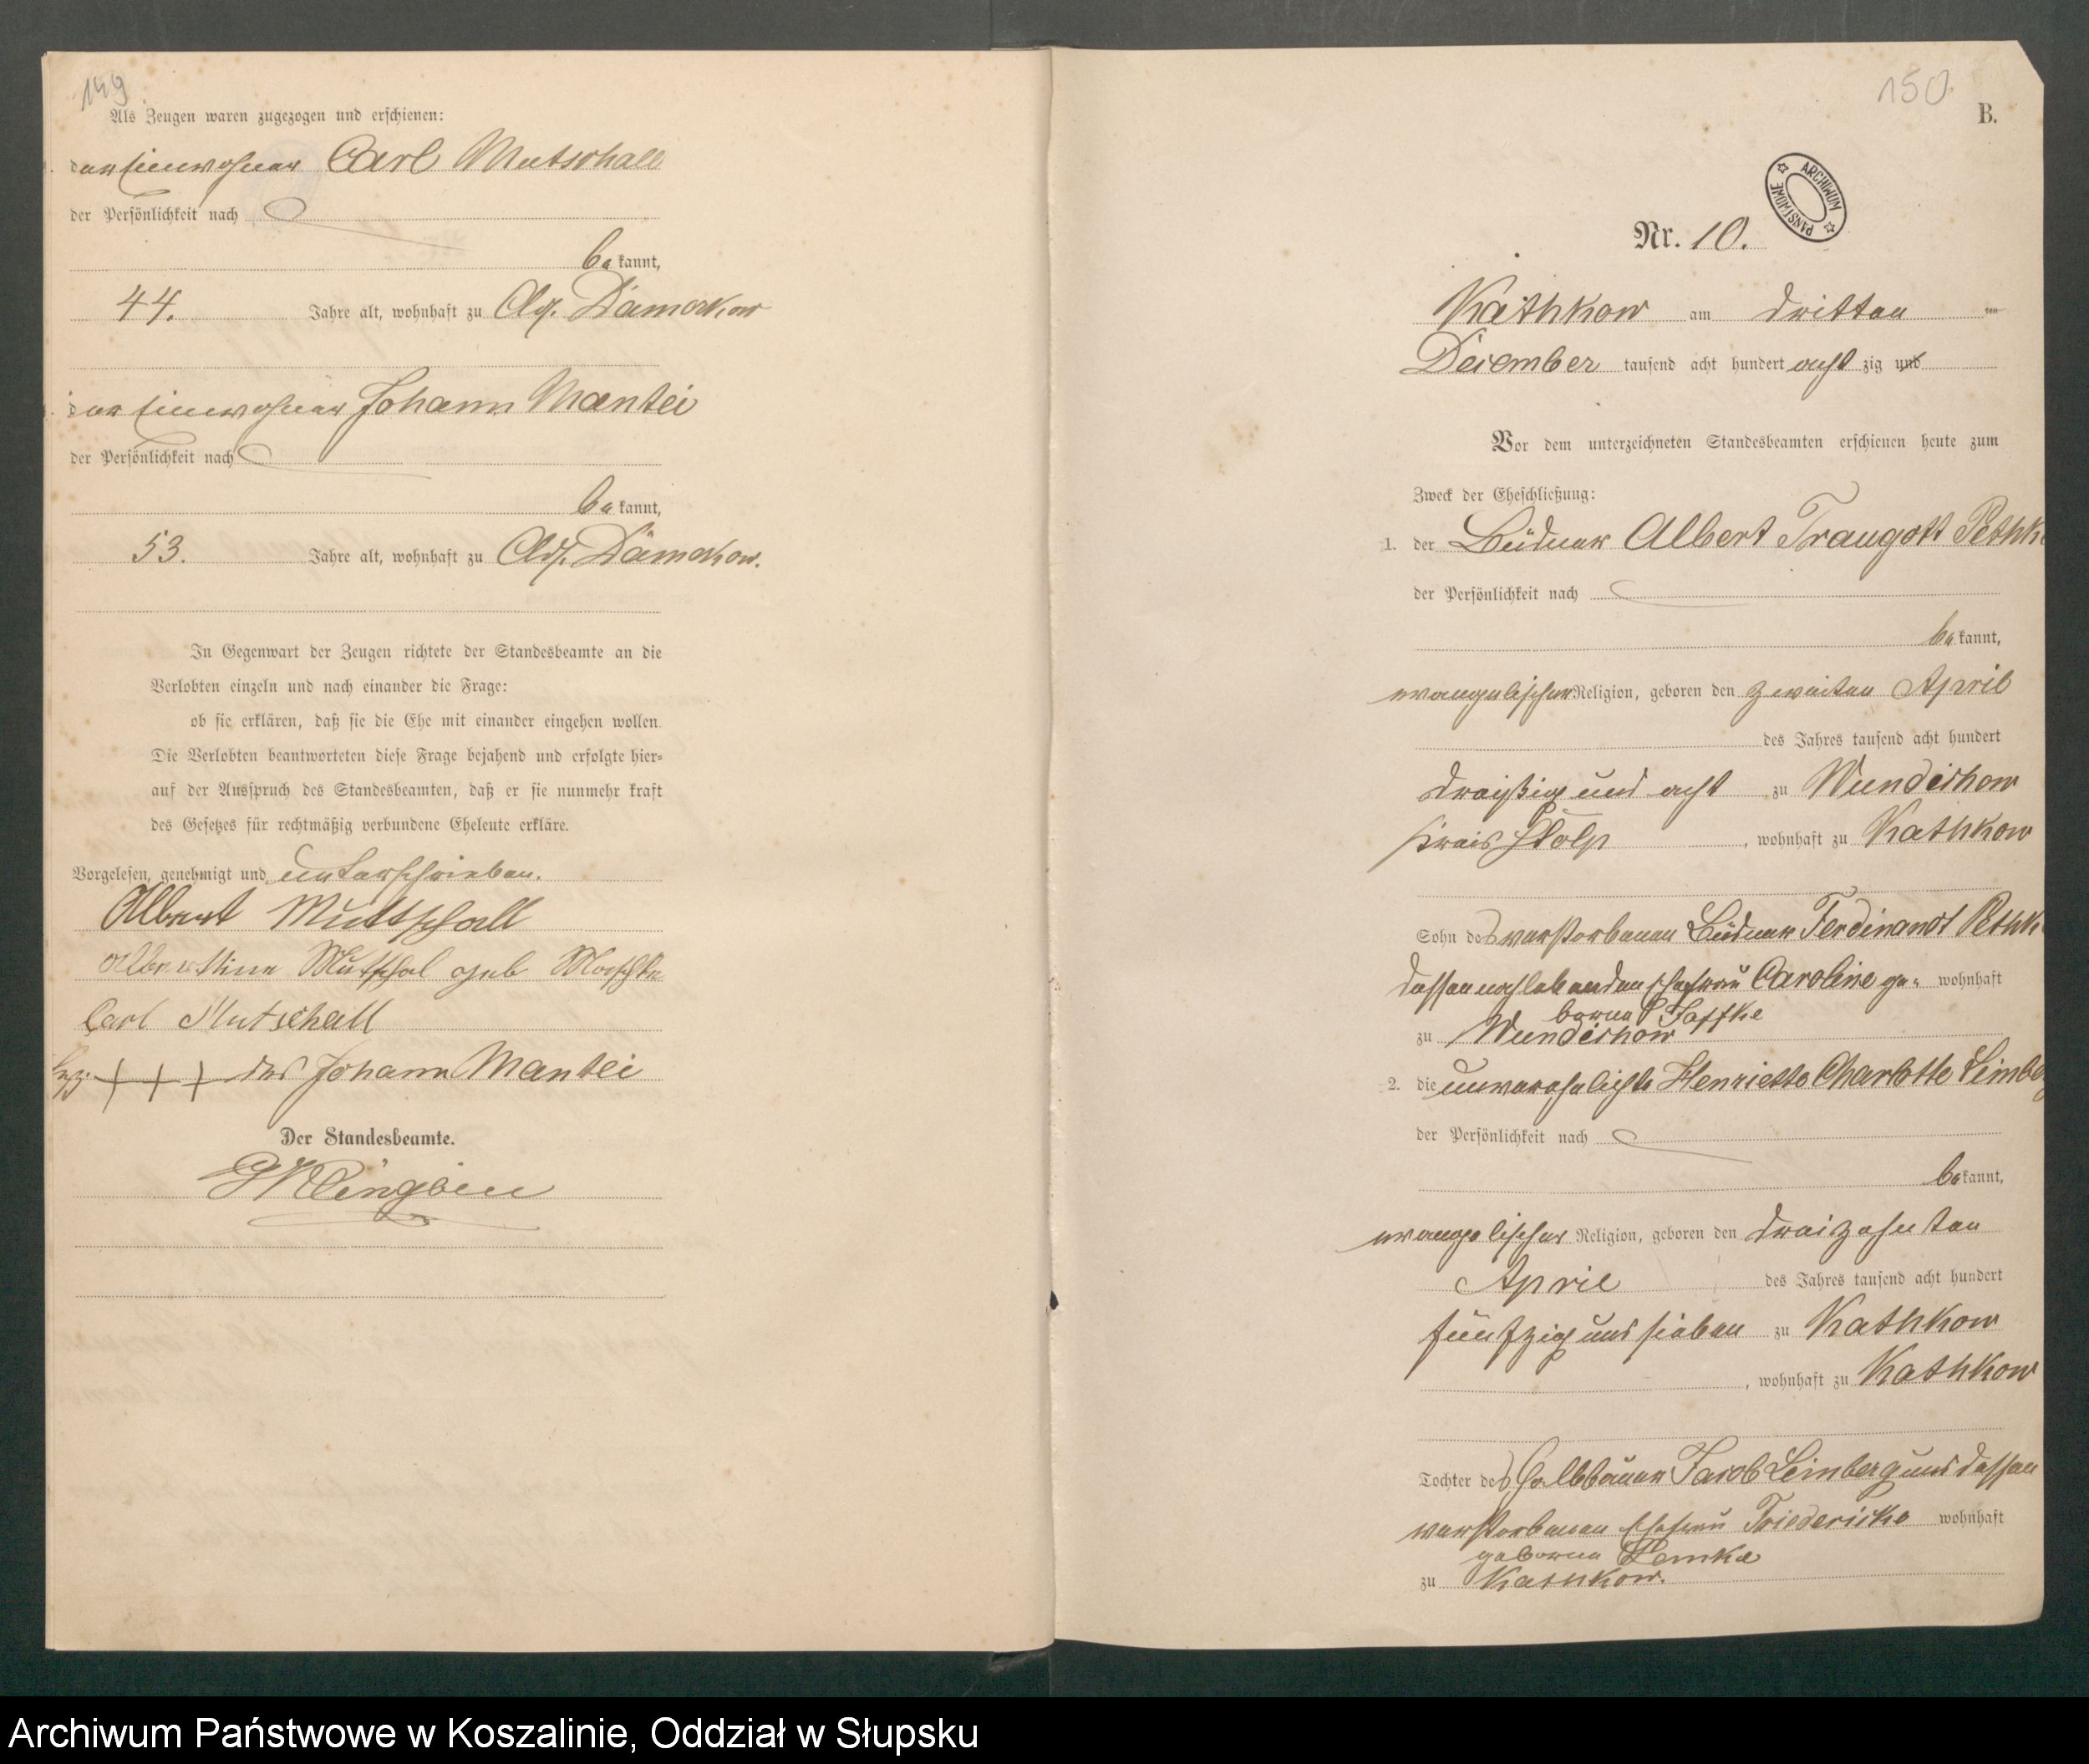 149
Als Zeugen waren zugezogen und erschienen:
der Einwohner Carl Mutschall
der Persönlichkeit nach
bekannt,
44. Jahre alt, wohnhaft zu Adl. Damerkow
der Einwohner Johann Mantei
der Persönlichkeit nach
bekannt,
53. Jahre alt, wohnhaft zu Adl. Damerkow.
In Gegenwart der Zeugen richtete der Standesbeamte an die
Verlobten einzeln und nach einander die Frage:
ob sie erklären, daß sie die Ehe mit einander eingehen wollen.
Die Verlobten beantworteten diese Frage bejahend und erfolgte hier-
auf der Ausspruch des Standesbeamten, daß er sie nunmehr kraft
des Gesetzes für rechtmäßig verbundene Eheleute erkläre.
Vorgelesen, genehmigt und unterschrieben.
Albert Mutschall
Albertine Mutschal geb
Carl Mutschall
+++ des Johann Mantei
Der Standesbeamte.
150
B.
ARCHIWUM PAŃSTWOWE
Nr. 10.
Kathkow am dritten
December tausend acht hundert acht zig und
Vor dem unterzeichneten Standesbeamten erschienen heute zum
Zweck der Eheschließung:
1. der Büdner Albert Traugott Pethk
der Persönlichkeit nach
bekannt,
evangelischer Religion, geboren den zweiten April
des Jahres tausend acht hundert
dreißig und acht zu Wundichow
Kreis Stolp, wohnhaft zu Kathkow
Sohn des verstorbenen Büdner Ferdinandt Pethk
dessen nachlebenden Ehefrau Caroline ge- wohnhaft
borne
zu Wundichow
2. die unverehelichte Henriette Charlotte Limberg
der Persönlichkeit nach
bekannt,
evangelischer Religion, geboren den dreizehnten
April des Jahres tausend acht hundert
fünfzig und sieben zu Kathkow
, wohnhaft zu Kathkow
Tochter des Halbbauer Jacob Limberg und dessen
verstorbenen Ehefrau Friedericke wohnhaft
geborne Lemke
zu Kathkow.
Archiwum Państwowe w Koszalinie, Oddział w Słupsku